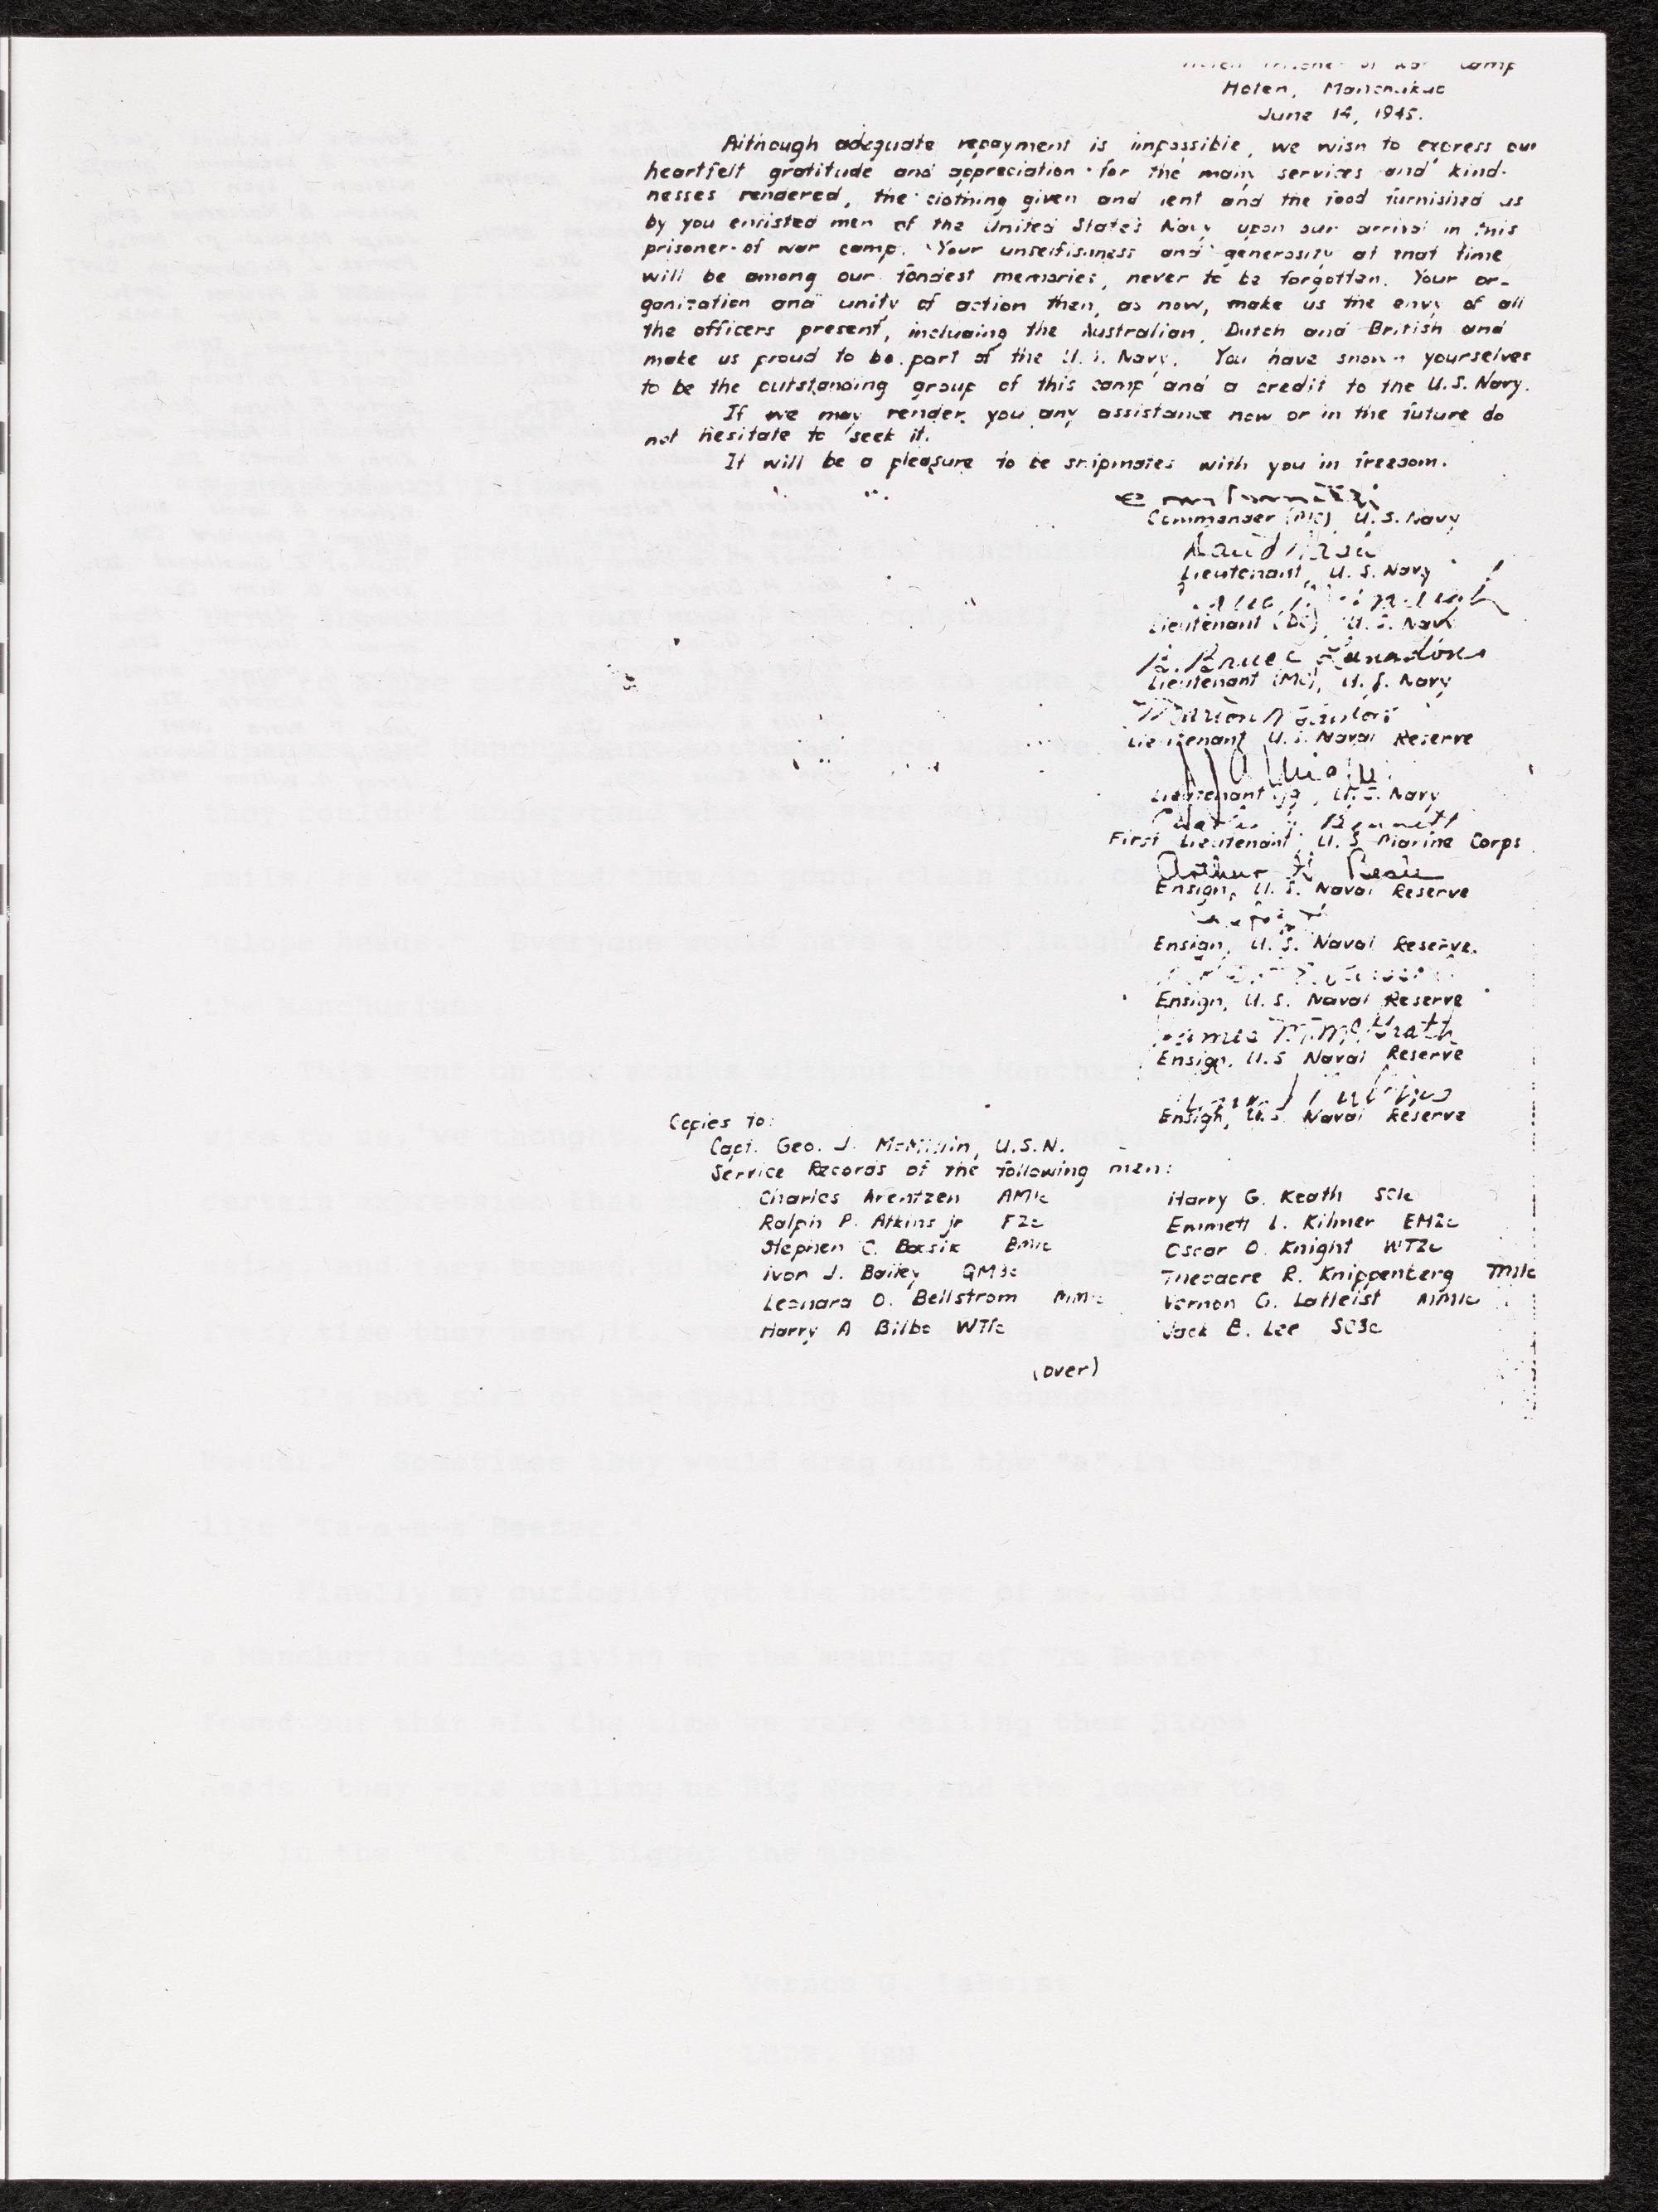 Hoten Prisoner of War Camp
Hoten, Manchukuo
June 14, 1945.
Although adequate repayment is impossible, we wish to express our
heartfelt gratitude and appreciation for the many services and kind-
nesses rendered, the clothing given and lent and the food furnished us
by you enlisted men of the United States Navy upon our arrival in this
prisoner of war camp. Your unselfishness and generosity at that time
will be among our fondest memories, never to be forgotten. Your or-
ganization and unity of action then, as now, make us the envy of all
the officers present, including the Australian, Dutch and British and
make us proud to be part of the U.S. Navy. You have shown yourselves
to be the outstanding group of this camp and a credit to the U.S. Navy.
If we may render you any assistance now or in the future do
not hesitate to seek it.
It will be a pleasure to be shipmates with you in freedom.
Commander (MC), U.S. Navy
David Nash
Lieutenant, U.S. Navy
Lieutenant (DC), U.S. Navy
H. Bruce Langdon
Lieutenant (MC), U.S. Navy
Lieutenant U.S. Naval Reserve
Lieutenant jg, U.S. Navy
Bennett
First Lieutenant, U.S. Marine Corps
Arthur K.
Ensign, U.S. Naval Reserve
Ensign, U.S. Naval Reserve.
Ensign, U.S. Naval Reserve
James McGrath
Ensign, U.S Naval Reserve
Ensign, U.S. Naval Reserve
Copies to:
Capt. Geo. J. McMillin, U.S.N.
Service Records of the following men:
Charles Arentzen AM1c
Ralph P. Atkins jr F2c
Stephen C. BM1c
Ivon J. Bailey GM3c
Leonard O. Bellstrom MM1c
Harry A Bilbo WT1c
Harry G. Keath SC1c
Emmett L. Kilmer EM2c
Oscar O. Knight WT2c
Theodore R. Knippenberg TM1c
Vernon G. LaHeist MM1c
Jack B. Lee SC3c
(over)